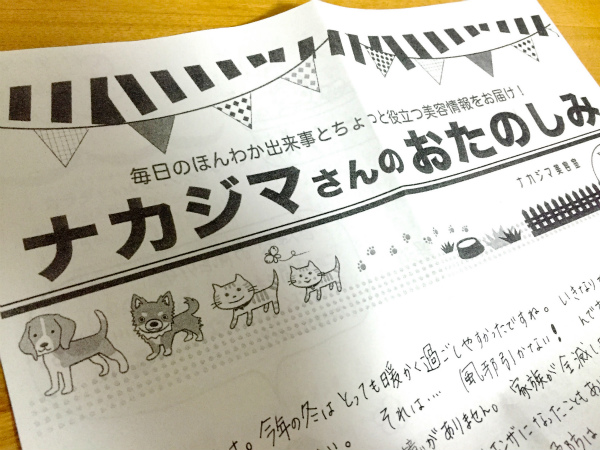 毎日のほんわか出来事とちょっと役立つ美容情報をお届け！
ナカジマさんのおたのしみ
ナカジマ美容室
今年の冬はとっても暖かく過ごしやすかったですね。いきなり
それは… 風邪引かない！
がありません。家族が全滅
になったことも